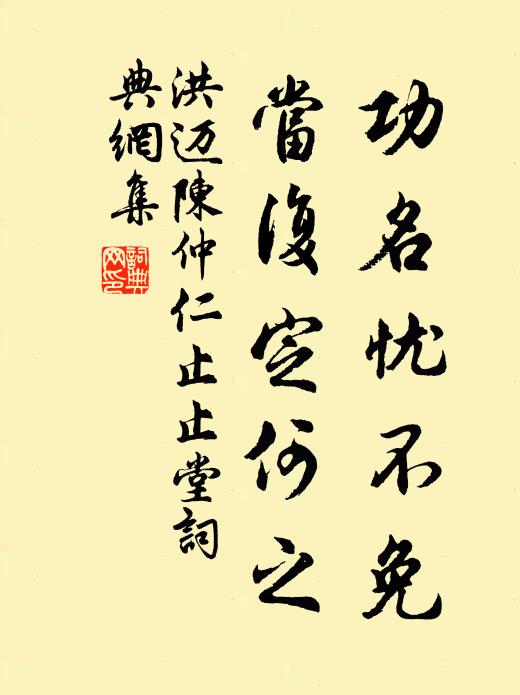 功名忧不免
當復定何之
洪迈陳仲仁止止堂詞
典網集
詞典
网印